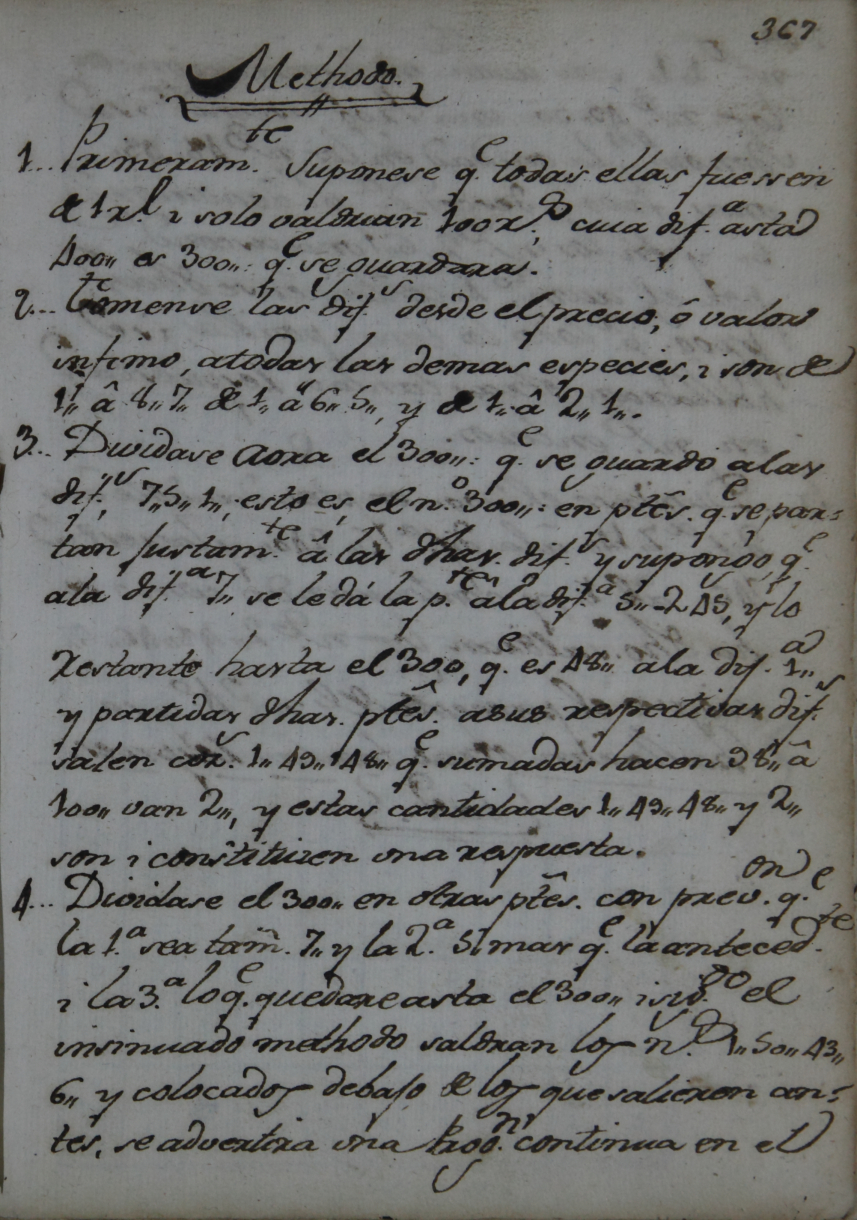 367
Methodo.
1.. Primeram.te Suponese q.e todas ellas fuessen
de 1 r.l i solo valdrian 100 r.s, cuia dif.a asta
400,, es 300,,: q.e se guardara.
2... Tomense las dif.s desde el precio, ô valor
infimo, a todas las demas especies, i son de
1,, â 8,, 7,, de 1,, â 6,, 5,, y de 1,, â 2,, 1,,.
3.. Dividase aora el 300,,: q.e se guardo a las
dif.s 7,, 5,, 1,,, esto es, el n.o 300,,: en ptês. q.e se par-
tan justam.te â las dhas. dif.s y supongo, q.e
a la dif.a 7,, se le dá la p.te â la dif.a 5,, 245, y lo
restante hasta el 300, q.e es 48,, a la dif.a 1,,
y partidas dhas. ptês. a sus respectivas dif.s
salen cor.s 1,, 49,, 48,, q.e sumadas hacen 98,, â
100,, van 2,,, y estas cantidades 1,, 49,, 48,, y 2,,
son i constituien una respuesta.
4... Dividase el 300,, en otras ptês. con prev.on q.e
la 1.a sea tam̃. 7,, y la 2.a 5,, mas q.e la anteced.te
i la 3.a lo q.e quedare asta el 300,, i sig.do el
insinuado methodo saldran los n.s 1,, 50,, 43,,
6,, y colocados debajo de los que salieron an-
tes, se advertira una Prog.n continua en el